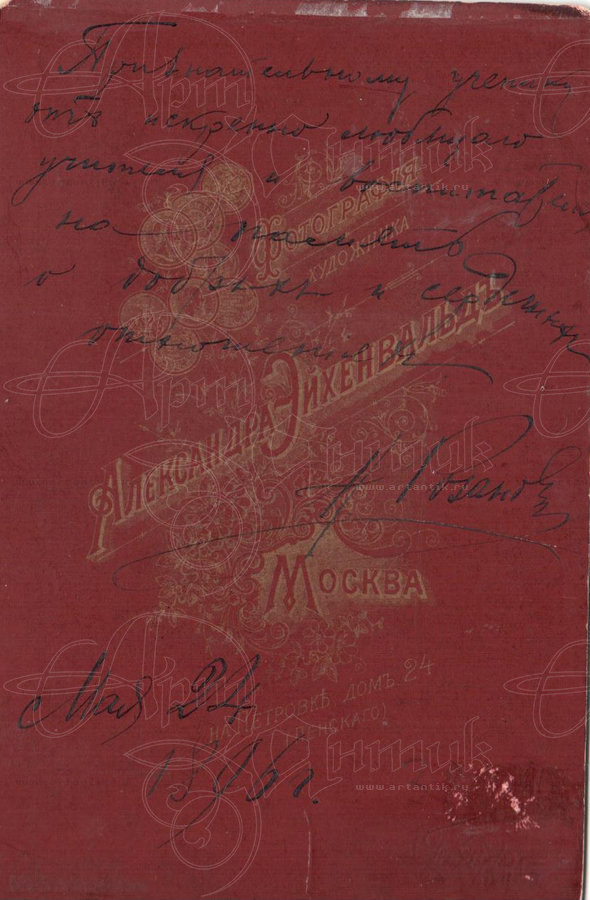 Признательному ученику
отъ искренно любящаго
учителя и воспитателя
на память
о добрыхъ и сердечныхъ
отношенiяхъ
Розановъ
Мая 24
г.
Фотографiя
художника
Александра Эйхенвальдъ
Москва
на Петровкѣ домъ 24
www.artantik.ru
www.artantik.ru
Арт Антик